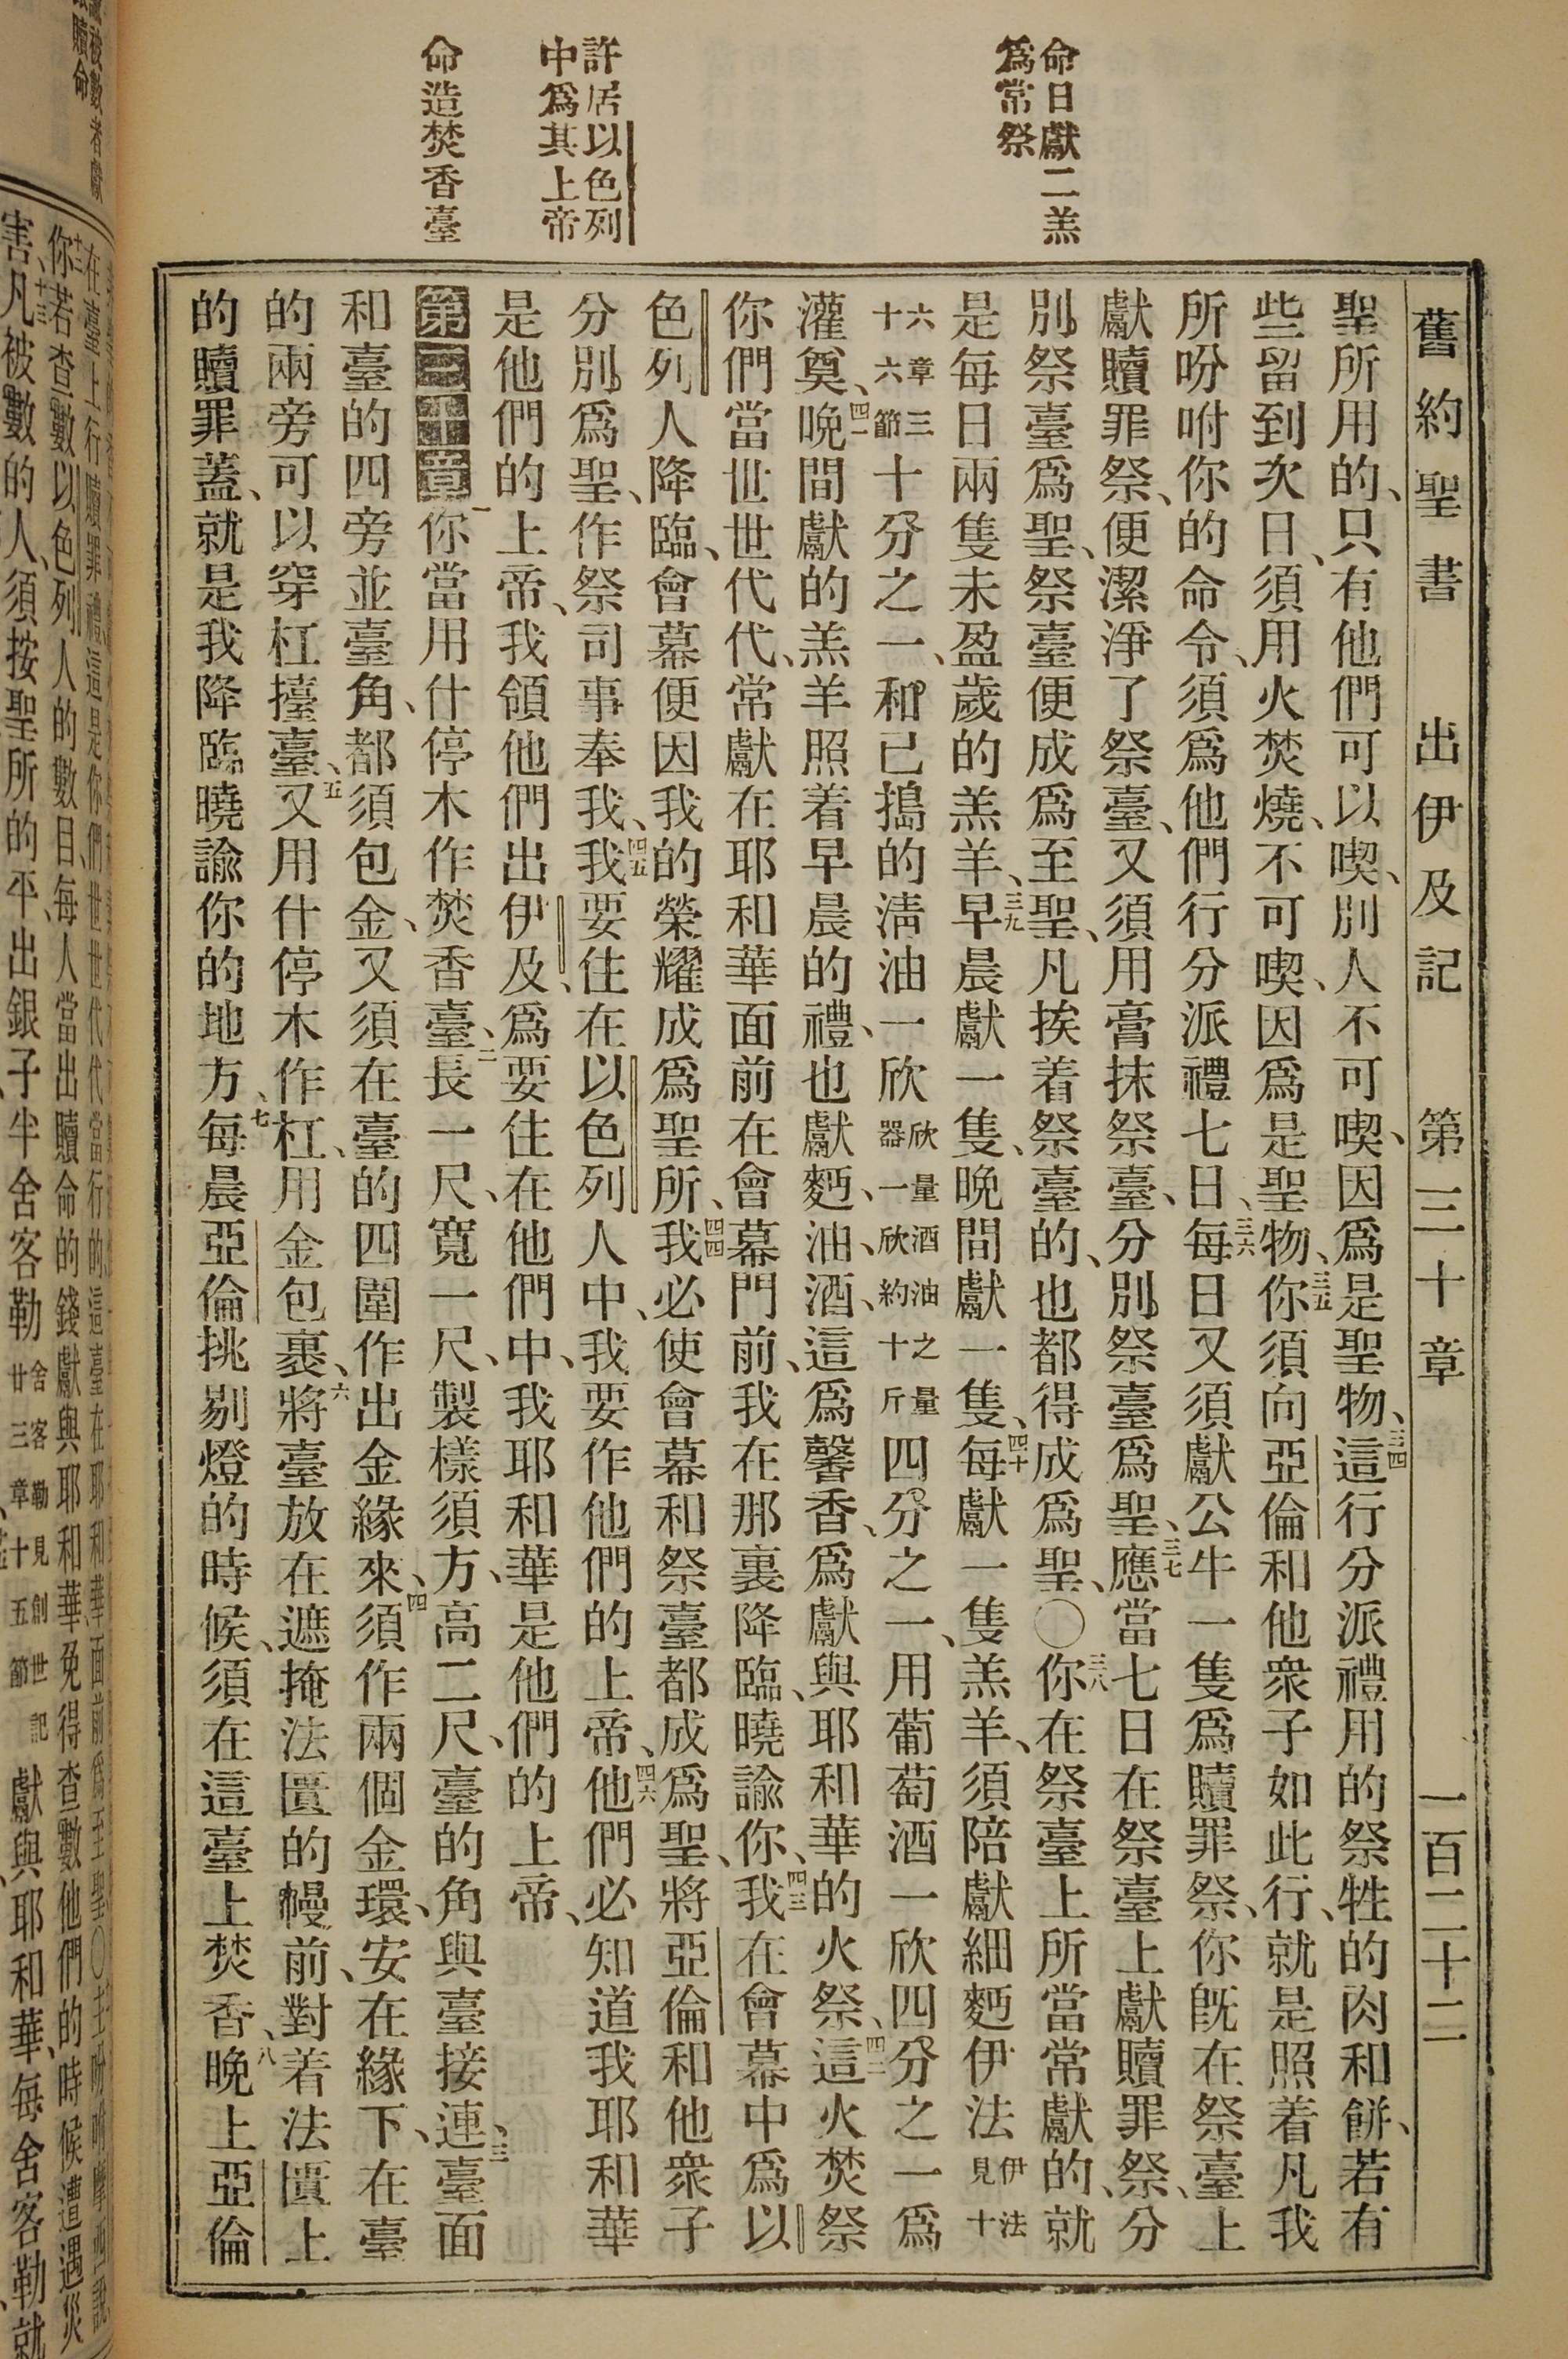 命日獻二羔
爲常祭
許居以色列
中爲其上帝
命造焚香臺
舊約聖書 出伊及記 第三十章 一百二十二
聖所用的、只有他們可以喫、別人不可喫、因爲是聖物、三四這行分派禮用的祭牲的肉和餅、若有
些留到次日、須用火焚燒、不可喫、因爲是聖物、三五你須向亞倫和他衆子如此行、就是照着凡我
所吩咐你的命令、須爲他們行分派禮七日、三六每日又須獻公牛一隻爲贖罪祭、你旣在祭臺上
獻贖罪祭、便潔淨了祭臺、又須用膏抹祭臺、分別祭臺爲聖、三七應當七日在祭臺上獻贖罪祭、分
別祭臺爲聖、祭臺便成爲至聖、凡挨着祭臺的、也都得成爲聖、〇三八你在祭臺上所當常獻的、就
是每日兩隻未盈歲的羔羊、三九早晨獻一隻、晚間獻一隻、四十每獻一隻羔羊、須陪獻細麪伊法伊法見十
六章三十六節十分之一、和已搗的淸油一欣欣量酒油之量器一欣約十斤四分之一、用葡萄酒一欣四分之一爲
灌奠、四一晚間獻的羔羊照着早晨的禮、也獻麪、油、酒、這爲馨香、爲獻與耶和華的火祭、四二這火焚祭
你們當世世代代、常獻在耶和華面前在會幕門前、我在那裏降臨、曉諭你、四三我在會幕中爲以
色列人降臨、會幕便因我的榮耀成爲聖所、四四我必使會幕和祭臺都成爲聖、將亞倫和他衆子
分別爲聖、作祭司事奉我、四五我要住在以色列人中、我要作他們的上帝、四六他們必知道我耶和華
是他們的上帝、我領他們出伊及、爲要住在他們中、我耶和華是他們的上帝、
第三十章一你當用什停木作焚香臺、二長一尺、寬一尺、製樣須方、高二尺、臺的角與臺接連、三臺面
和臺的四旁並臺角、都須包金、又須在臺的四圍作出金緣來、四須作兩個金環、安在緣下、在臺
的兩旁可以穿杠擡臺、五又用什停木作杠、用金包裹、六將臺放在遮掩法匱的幔前、對着法匱上
的贖罪蓋、就是我降臨曉諭你的地方、七每晨亞倫挑剔燈的時候、須在這臺上焚香、八晚上亞倫